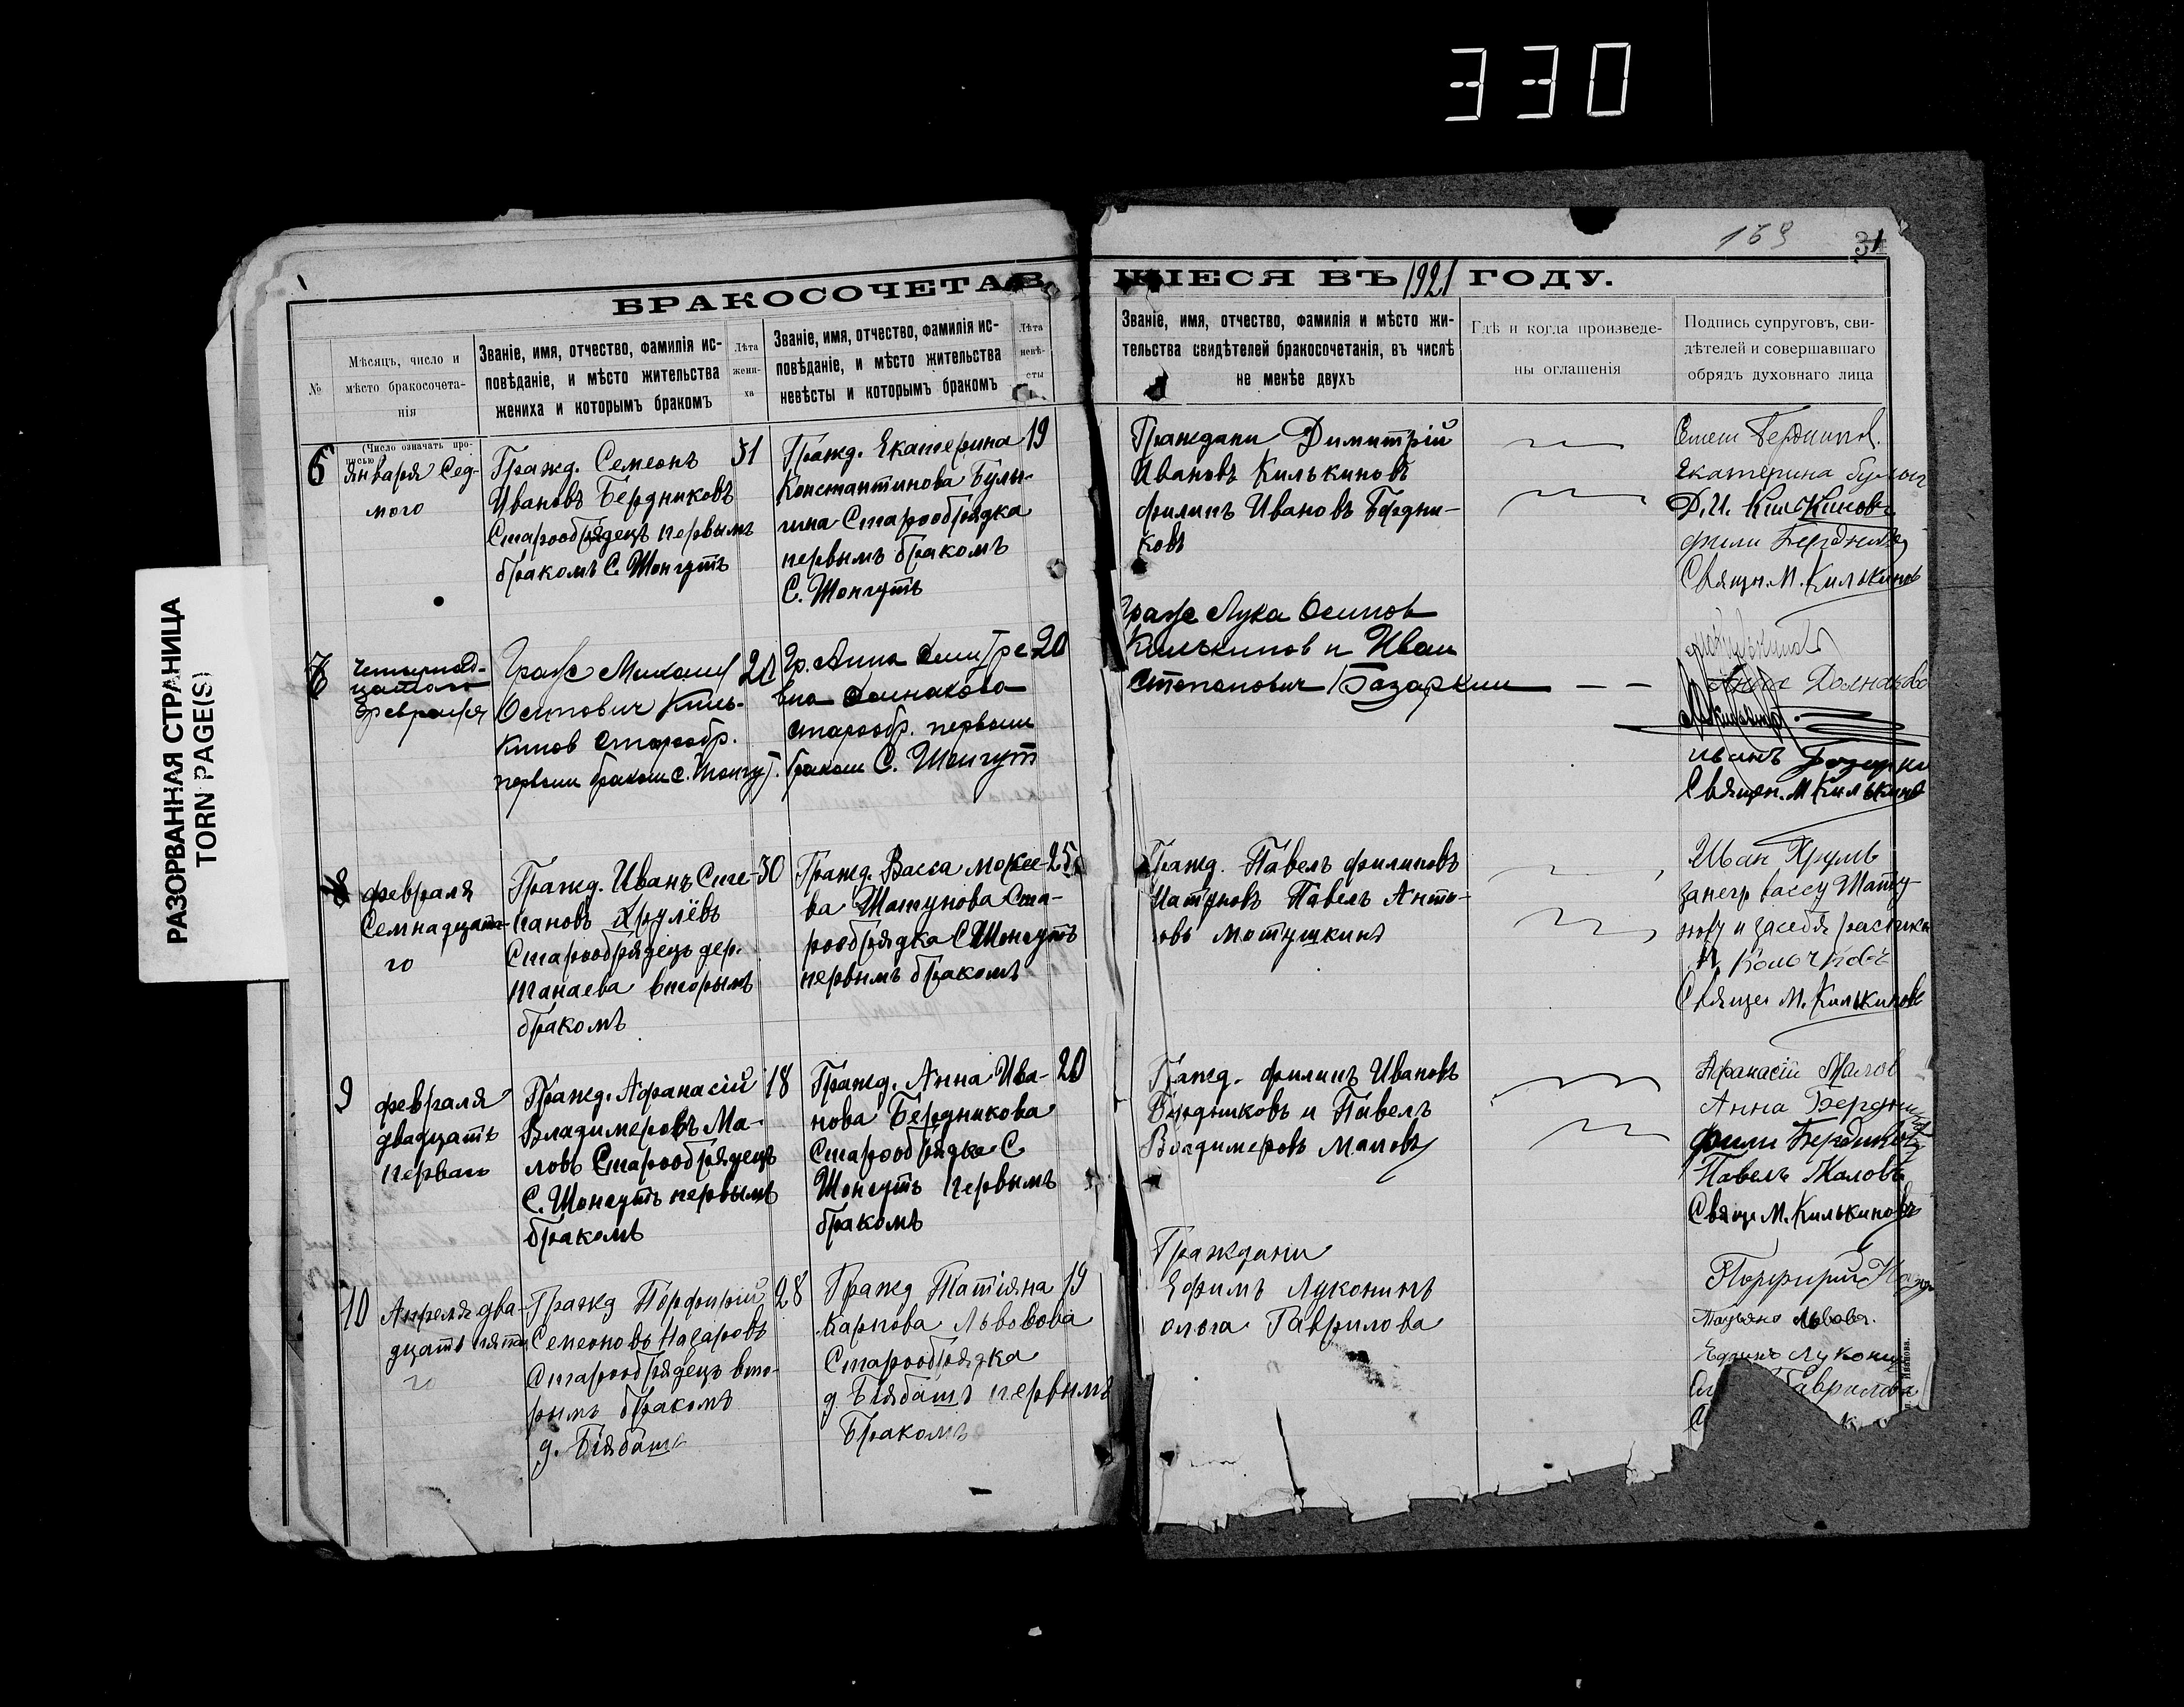 330
РАЗОРВАННАЯ СТРАНИЦА
TORN PAGE(S)
169
31
БРАКОСОЧЕТАВШІЕСЯ ВЪ 1921 ГОДУ.
№
Мѣсяцъ, число и
мѣсто бракосочета-
нія
Званіе, имя, отчество, фамилія ис-
повѣданіе, и мѣсто жительства
жениха и которымъ бракомъ
Лѣта
жени-
ха
Званіе, имя, отчество, фамилія ис-
повѣданіе, и мѣсто жительства
невѣсты и которымъ бракомъ
Лѣта
невѣ-
сты
Званіе, имя, отчество, фамилія и мѣсто жи-
тельства свидѣтелей бракосочетанія, въ числѣ
не менѣе двухъ
Гдѣ и когда произведе-
ны оглашенія
Подпись супруговъ, сви-
дѣтелей и совершавшаго
обрядъ духовнаго лица
(Число означать про-
писью)
6
Января Сед-
мого
Гражд. Семеонъ
Ивановъ Бердниковъ
Старообрядецъ первымъ
бракомъ С. Шонгутъ
31
Гражд. Екатерина
Константинова Булы-
гина Старообрядка
первымъ бракомъ
С. Шонгутъ
19
Граждани Димитрій
Ивановъ Килькиновъ
филипъ Ивановъ Бердни-
ковъ
Екатерина
Д.И. Килькиновъ
фили
Свящн. М. Килькинов
7
четырнад-
цатаго
февраля
Граж Михаил
Осипович Киль-
кинов старообр.
первым браком с. Шонгут.
Гр. Анна Дмитре-
вна
старообр. первым
браком С. Шонгут
20
Граж Лука Осипов
Килькинов и Иван
Степанович Базаркин
Анна
иванъ
Священ. М Килькинов
8
февраля
Семнадцата-
го
Гражд. Иванъ Сте-
пановъ Хрулёвъ
Старообрядецъ дер.
Танаева вторымъ
бракомъ
30
Гражд. Васса Мокее-
ва Шатунова Ста-
рообрядка С Шонгутъ
первымъ бракомъ
25
Гражд. Павелъ филиповъ
Шатуновъ Павелъ Анто-
овъ мотушкинъ
Иван Хрулв
Вассу Шату-
нову и засебя
Священ М. Килькиновъ
9
февраля
двадцать
перваго
Гражд. Афанасій
Владимеровъ Ма-
ловъ Старообрядецъ
С. Шонгутъ первымъ
бракомъ
18
Гражд. Анна Ива-
нова Бердникова
Старообрядка С
Шонгутъ первымъ
бракомъ
20
Гажд. филипъ Ивановъ
Бердниковъ и Павелъ
Владимеровъ Маловъ
Афанасій Малов
Анна
фили
Павелъ Маловъ
Свящ М. Килькиновъ
10
Апреля два-
дцать пята
го
Гражд Порфирій
Семеоновъ Назаровъ
Старообрядецъ вто-
рымъ бракомъ
д. Біябашъ
28
Гражд Татіяна
Карпова Львовова
Старообрядка
д Біябашъ первымъ
Бракомъ
19
Граждани
Ефимъ Луконинъ
олька Гаврилова
Порфирий
Львова.
Ефимъ
Гаврилова